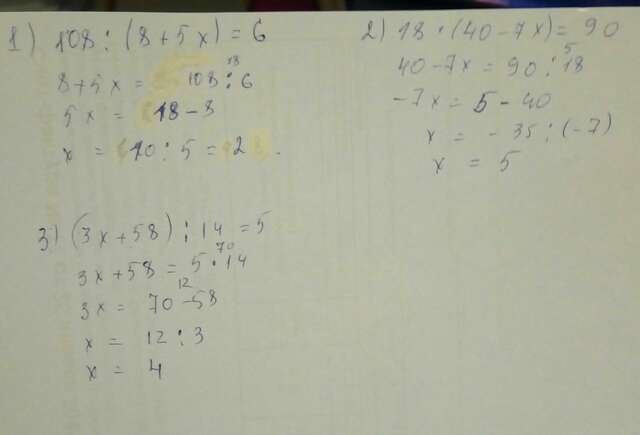 1) 108 : (8 + 5x) = 6
8 + 5x = 108 : 6
18
5x = 18 - 8
x = 10 : 5 = 2.
2) 18 · (40 - 7x) = 90
40 - 7x = 90 : 18
5
-7x = 5 - 40
x = -35 : (-7)
x = 5
3) (3x + 58) : 14 = 5
3x + 58 = 5 · 14
70
3x = 70 - 58
12
x = 12 : 3
x = 4